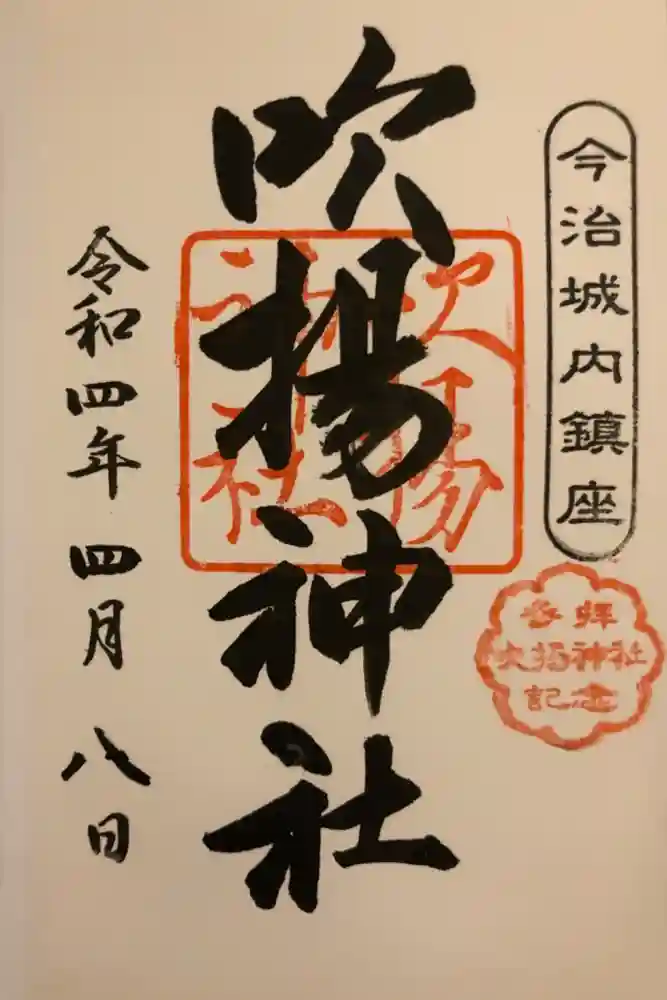 今治城内鎮座
参拝
吹揚神社
記念
吹揚神社
吹揚
神社
令和四年 四月 八日